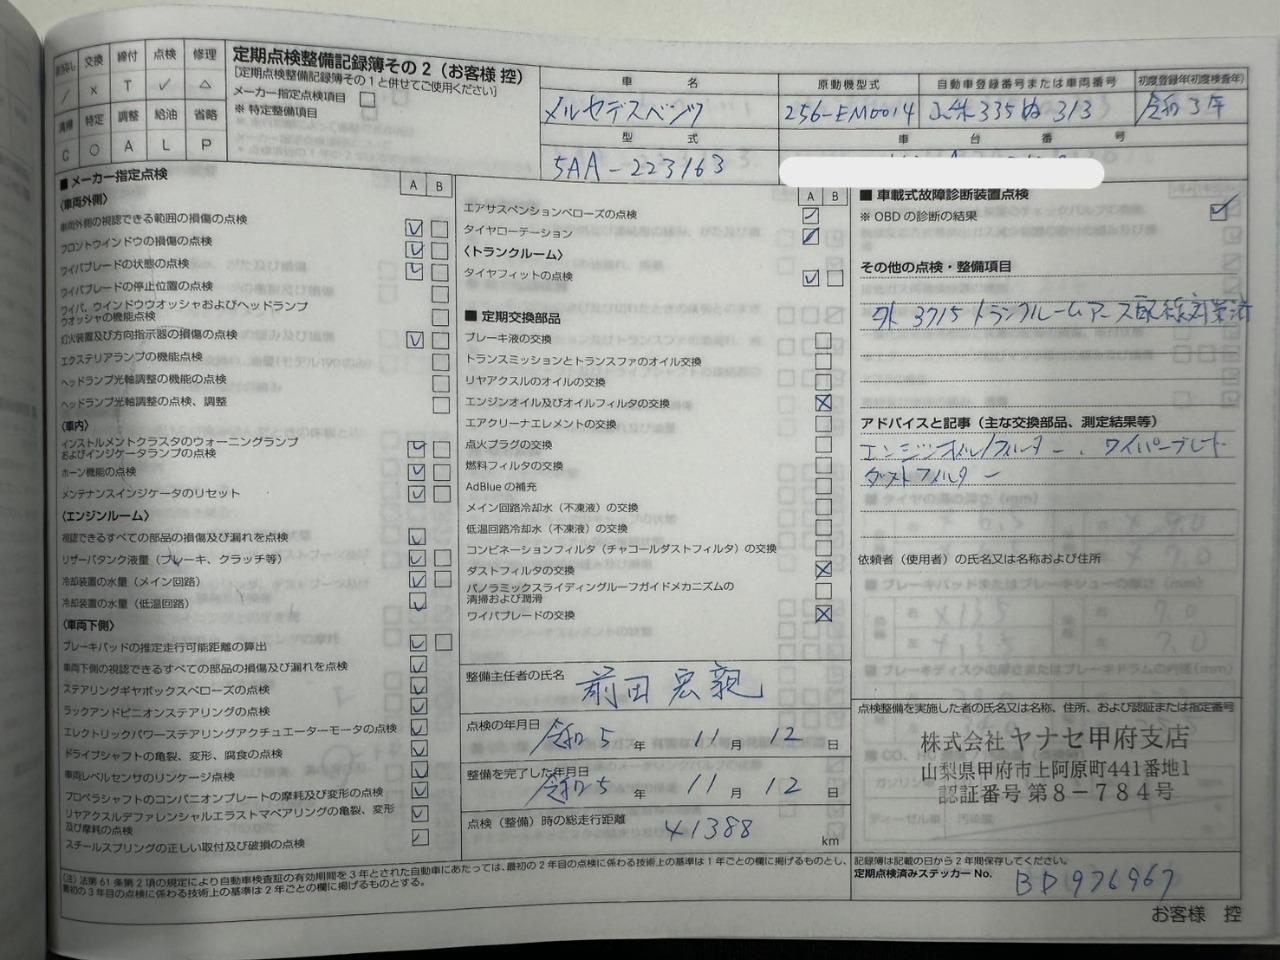 交換 締付 点検 修理
/ × T ✓ △
清掃 特定 調整 給油 省略
C ○ A L P
定期点検整備記録簿その2(お客様 控)
[定期点検整備記録簿その1と併せてご使用ください]
メーカー指定点検項目 □
※ 特定整備項目 □
車 名
メルセデスベンツ
原動機型式
256-EM0014
自動車登録番号または車両番号
335 ぬ 313
初度登録年(初度検査年)
令和3年
型 式
5AA-223163
車 台 番 号
■ メーカー指定点検
A B
〈車両外側〉
車両外側の視認できる範囲の損傷の点検
フロントウインドウの損傷の点検
ワイパブレードの状態の点検
ワイパブレードの停止位置の点検
ワイパ、ウインドウウオッシャおよびヘッドランプ
ウオッシャの機能点検
灯火装置及び方向指示器の損傷の点検
エクステリアランプの機能点検
ヘッドランプ光軸調整の機能の点検
ヘッドランプ光軸調整の点検、調整
〈車内〉
インストルメントクラスタのウォーニングランプ
およびインジケータランプの点検
ホーン機能の点検
メンテナンスインジケータのリセット
〈エンジンルーム〉
視認できるすべての部品の損傷及び漏れを点検
リザーバタンク液量(ブレーキ、クラッチ等)
冷却装置の水量(メイン回路)
冷却装置の水量(低温回路)
〈車両下側〉
ブレーキパッドの推定走行可能距離の算出
車両下側の視認できるすべての部品の損傷及び漏れを点検
ステアリングギヤボックスベローズの点検
ラックアンドピニオンステアリングの点検
エレクトリックパワーステアリングアクチュエーターモータの点検
ドライブシャフトの亀裂、変形、腐食の点検
車両レベルセンサのリンケージ点検
プロペラシャフトのコンパニオンプレートの摩耗及び変形の点検
リヤアクスルデファレンシャルエラストマベアリングの亀裂、変形
及び摩耗の点検
スチールスプリングの正しい取付及び破損の点検
A B
エアサスペンションベローズの点検
タイヤローテーション
〈トランクルーム〉
タイヤフィットの点検
■ 定期交換部品
ブレーキ液の交換
トランスミッションとトランスファのオイル交換
リヤアクスルのオイルの交換
エンジンオイル及びオイルフィルタの交換
エアクリーナエレメントの交換
点火プラグの交換
燃料フィルタの交換
AdBlue の補充
メイン回路冷却水(不凍液)の交換
低温回路冷却水(不凍液)の交換
コンビネーションフィルタ(チャコールダストフィルタ)の交換
ダストフィルタの交換
パノラミックスライディングルーフガイドメカニズムの
清掃および潤滑
ワイパブレードの交換
整備主任者の氏名
前田 宏親
点検の年月日
令和5 年 11 月 12 日
整備を完了した年月日
令和5 年 11 月 12 日
点検(整備)時の総走行距離
41388 km
■ 車載式故障診断装置点検
※ OBD の診断の結果
その他の点検・整備項目
外 3715 トランクルームアース配線対策済
アドバイスと記事(主な交換部品、測定結果等)
エンジンオイル/フィルター、ワイパーブレード
ダストフィルター
依頼者(使用者)の氏名又は名称および住所
点検整備を実施した者の氏名又は名称、住所、および認証または指定番号
株式会社 ヤナセ甲府支店
山梨県甲府市上阿原町441番地1
認証番号 第8-784号
(注)法第61条第2項の規定により自動車検査証の有効期間を3年とされた自動車にあたっては、最初の2年目の点検に係わる技術上の基準は1年ごとの欄に掲げるものとし、
最初の3年目の点検に係わる技術上の基準は2年ごとの欄に掲げるものとする。
記録簿は記載の日から2年間保存してください。
定期点検済みステッカー No. BD976967
お客様 控